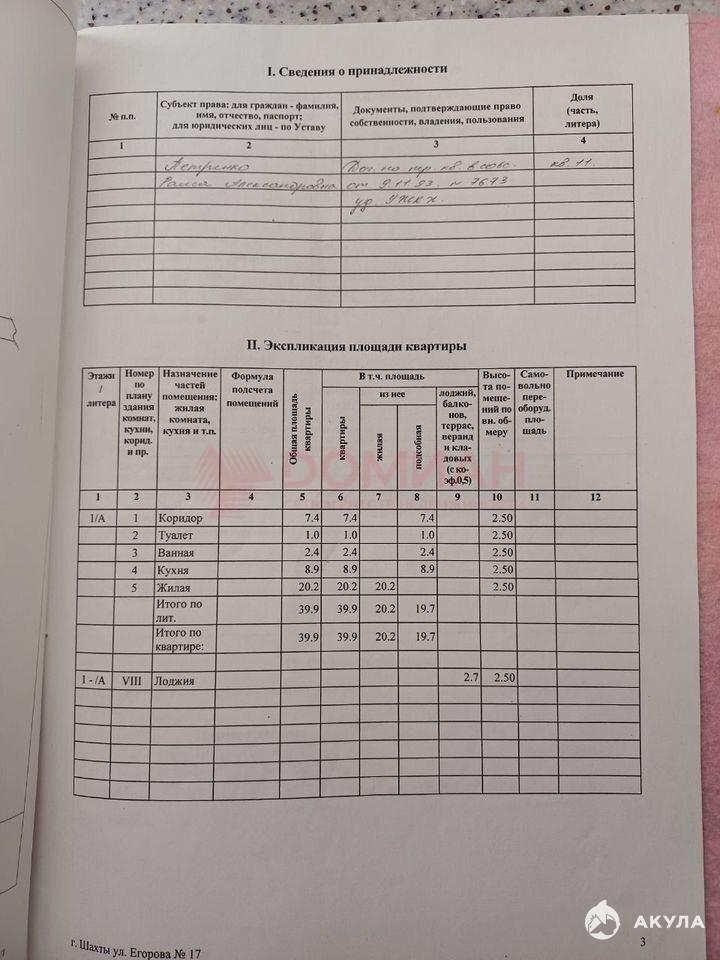 I. Сведения о принадлежности
№ п.п. Субъект права: для граждан - фамилия, имя, отчество, паспорт; для юридических лиц - по Уставу Документы, подтверждающие право собственности, владения, пользования Доля (часть, литера)
1 2 3 4
Петренко Дог. на пер. кв. в собс. кв. 11.
Раиса Александровна от 9.11.93. № 7673
уд. УЖКХ.
II. Экспликация площади квартиры
Этажи / литера Номер по плану здания комнат, кухни, корид. и пр. Назначение частей помещения: жилая комната, кухня и т.п. Формула подсчета помещений Общая площадь квартиры В т.ч. площадь квартиры из нее жилая подсобная лоджий, балконов, террас, веранд и кладовых (с коэф.0,5) Высота помещений по вн. обмеру Самовольно переоборуд. площадь Примечание
1 2 3 4 5 6 7 8 9 10 11 12
1/А 1 Коридор 7.4 7.4 7.4 2.50
2 Туалет 1.0 1.0 1.0 2.50
3 Ванная 2.4 2.4 2.4 2.50
4 Кухня 8.9 8.9 8.9 2.50
5 Жилая 20.2 20.2 20.2 2.50
Итого по лит. 39.9 39.9 20.2 19.7
Итого по квартире: 39.9 39.9 20.2 19.7
1 - /А VIII Лоджия 2.7 2.50
ДОМИАН
г. Шахты ул. Егорова № 17
3
АКУЛА